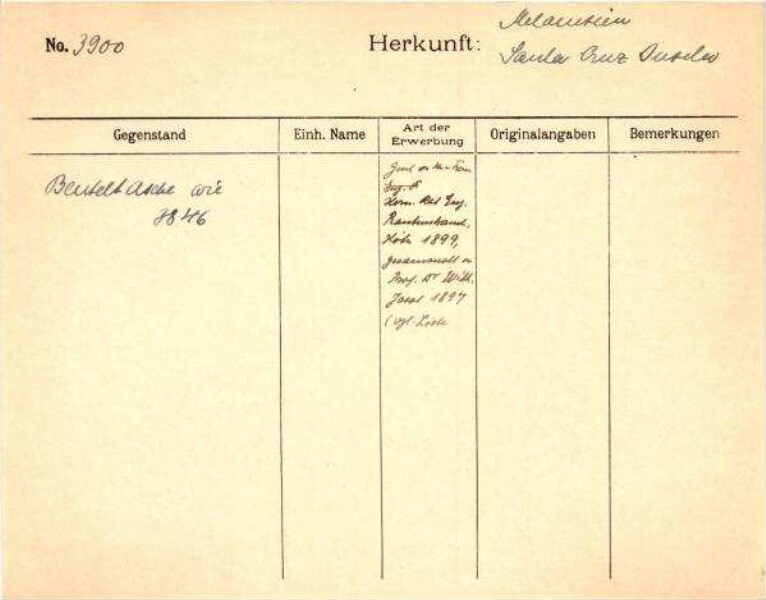 No. 3900
Herkunft: Melanesien
Santa Cruz Inseln
Gegenstand
Einh. Name
Art der Erwerbung
Originalangaben
Bemerkungen
Beuteltasche wie
3846
Frau
Eug.
Kom. Rat Eug.
Rautenstrauch,
Köln 1899,
gesammelt v
Prof. Dr Wilh.
Joest 1897
(vgl. Liste